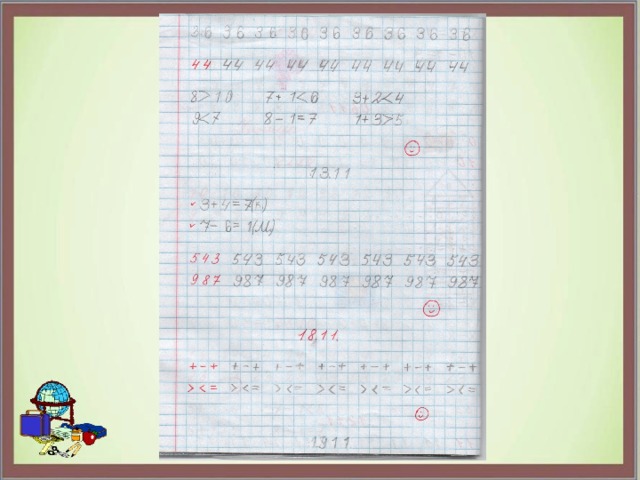 36 36 36 36 36 36 36 36 36
44 44 44 44 44 44 44 44 44
8>10 7+1<6 3+2<4
9<7 8-1=7 1+3>5
13.11
3+4=7(к)
7-6=1(М)
543 543 543 543 543 543 543
987 987 987 987 987 987 987
18.11.
+-+ +-+ +-+ +-+ +-+ +-+ +-+
><= ><= ><= ><= ><= ><= ><=
19.11